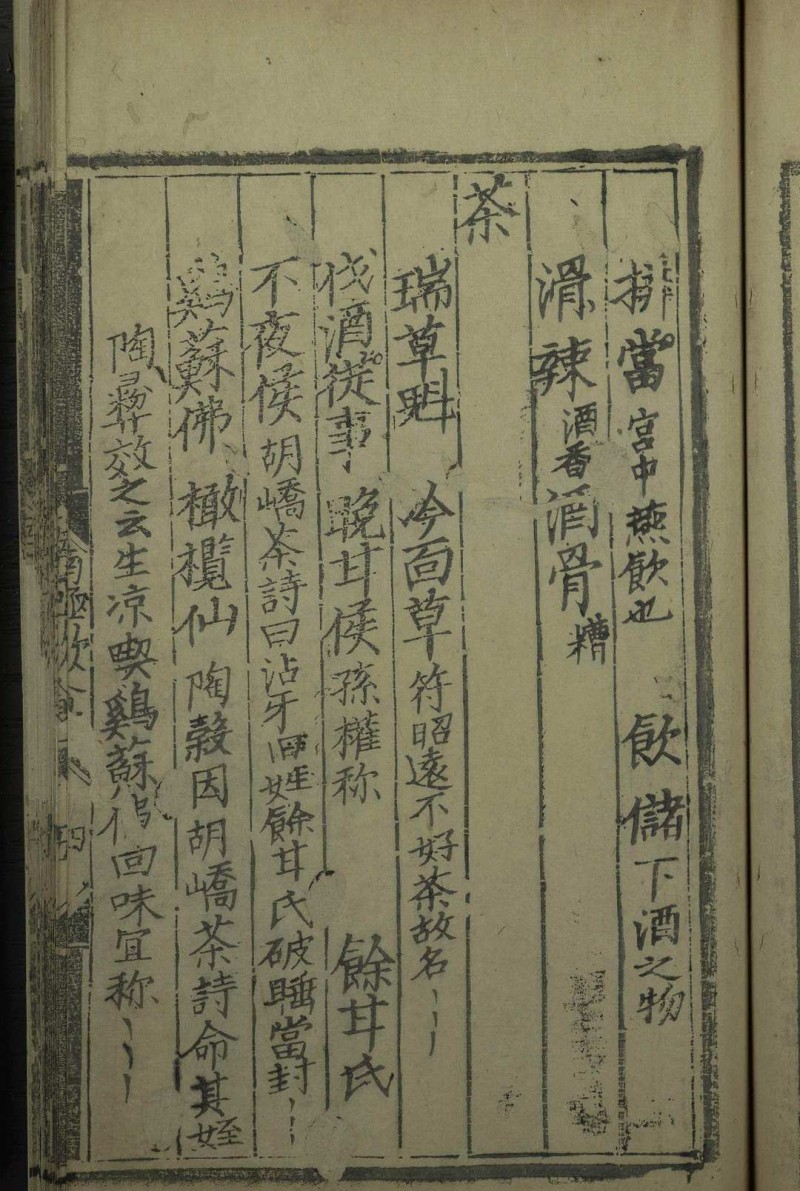 排當 宮中燕飲也 飲儲 下酒之物
滑辣 酒香 酒骨 糟
茶
瑞草魁 冷面草 符昭遠不好茶故名
伐酒從事 晚甘侯 孫樵称 餘甘氏
不夜侯 胡嶠茶詩曰沾牙 姓餘甘氏破睡當封
鷄蘇佛 橄欖仙 陶穀因胡嶠茶詩命其姪
陶彞效之云生凉喫鷄蘇 回味宜称